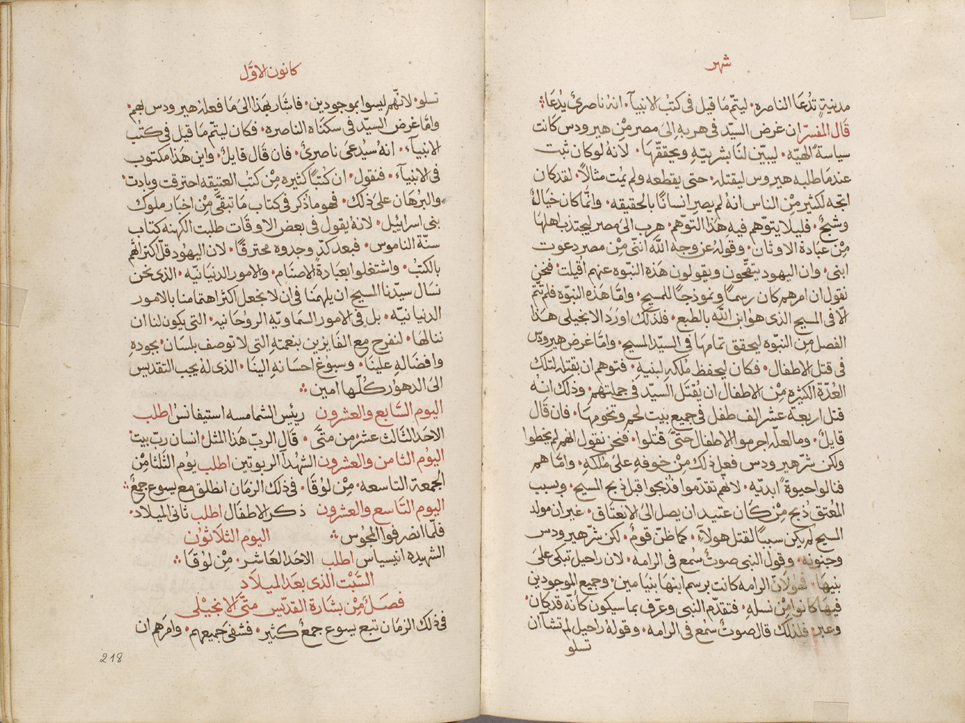 شهر
مدينةٍ تدعا الناصره. ليتم ما قيل في كتب الانبيآ. انه ناصريٌ يُدعا:
قال المفسر ان غرض السيد في هربه الى مصر من هيرودس كانت
سياسة الهيّه. ليبيّن لنا بشريته ويحققها. لانه لو كان ثبت
عندما طلبه هيرودس ليقتله. حتى يقطعه ولم يمت مثالاً. لقد كان
اتجه لكثير من الناس انه لم يصر انساناً بالحقيقه. وانما كان خيالٌ
وشبحٌ. فليلا يتوهم فيه هذا التوهم. هرب الى مصر ليجتذب اهلها
من عبادة الاوثان. وقوله عز وجه الله انني من مصر دعوت
ابني. وان اليهود يتقحون ويقولون هذه النبوه عنهم اقيلت. فنحن
نقول ان امرهم كان رسماً ونموذجاً للمسيح. واما هذه النبوه فلم تتم
الا في المسيح الذي هو ابن الله بالطبع. فلذلك اورد الانجيلي هذا
الفصل من النبوه ليحقق تمامها في السيد المسيح. واما غرض هيرودس
في قتل الاطفال. فكان ليحفظ ملكه لبنيه. فتوهم ان بقتله لتلك
العدة الكثيره من الاطفال ان يُقتل السيد في جملتهم. وذلك انه
قتل اربعة عشر الف طفل في جميع بيت لحم وتخومها. فان قال
قايلٌ. وما لعله اجرموا الاطفال حتى قتلوا. فنحن نقول انهم لم يخطوا
ولكن شر هيرودس فعل ذلك من خوفه على ملكه. واما هم
فنالوا حيوة ابديه. لانهم تقدموا فذبحوا قبل ذبح المسيح. وسبب
المعتق ذبح من كان عتيد ان يصل الى الانعتاق. غير ان مولد
المسيح لم يكن سبباً لقتل هولآء. كما ظن قومٌ. لكن شر هيرودس
وجنونه. وقول النبي صوتٌ سُمع في الرامه. لان راحيل تبكي على
بنيها. فهولآن الرامه كانت برسم ابنها بنيامين. وجميع الموجودين
فيها كانوا من نسله. فتقدم النبي وعرف بما سيكون كانه قد كان
وعبر. فلذلك قال صوتٌ سُمع في الرامه. وقوله راحيل لم تشا ان
تسلو
كانون الاوّل
تسلو. لانهم ليسوا بموجودين. فاشار بهذا الى ما فعله هيرودس بهم.
واما غرض السيد في سكناه الناصره. فكان ليتم ما قيل في كتب
الانبيآء. انه سيُدعى ناصريٌ. فان قال قايلٌ. واين هذا مكتوب
في الانبيآء. فنقول. ان كتباً كثيره من كتب العتيقه احترقت وبادت.
والبرهان على ذلك. فهو ما ذكر في كتاب ما تبقى من اخبار ملوك
بني اسرائيل. لانه يقول في بعض الاوقات طلبت الكهنه كتاب
سنّة الناموس. فبعد كدٍّ وجدوه محترقاً. لان اليهود قل اكتراثهم
بالكتب. واشتغلوا بعبادة الاصنام. والامور الدنيانيه. الذي نحن
نسال سيدنا المسيح ان يلهمنا في ان لا نجعل اكثر اهتمامنا بالامور
الدنيانيّه. بل في الامور السماويه الروحانيه. التي يكون لنا ان
ننالها. لنفرح مع الفايزين بنعمته التي لا توصف بلسان. بجوده
وافضاله علينا. وسبوغ احسانه الينا. الذي له يجب التقديس
الى الدهور كلّها امين:
اليوم السابع والعشرون رييس الشمامسه استيفانس اطلب
الاحد الثالث عشر من متّى. قال الرب هذا المثل. انسان رب بيت.
اليوم الثامن والعشرون الشهدآ الربوتين اطلب يوم الثلاثا من
الجمعة التاسعه. من لوقا. في ذلك الزمان انطلق مع يسوع جمعٌ:
اليوم التاسع والعشرون ذكر الاطفال اطلب ثاني الميلاد.
فلما انصرفوا المجوس: اليوم الثلاثون
الشهيده انيسياس اطلب الاحد العاشر. من لوقا:
السبت الذي بعد الميلاد
فصل من بشارة القديس متّى الانجيلي
في ذلك الزمان تبع يسوع جمعٌ كثير. فشفى جميعهم. وامرهم ان
218